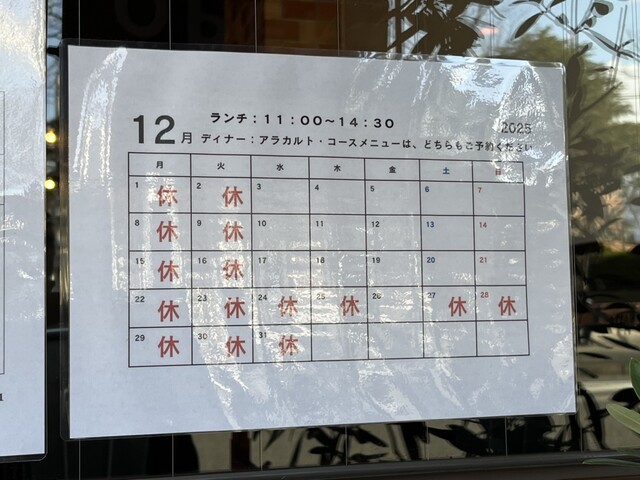 ランチ：11：00～14：30
12月 ディナー：アラカルト・コースメニューは、どちらもご予約ください
2025
月 火 水 木 金 土 日
1 休 2 休 3 4 5 6 7
8 休 9 休 10 11 12 13 14
15 休 16 休 17 18 19 20 21
22 休 23 休 24 休 25 休 26 27 休 28 休
29 休 30 休 31 休